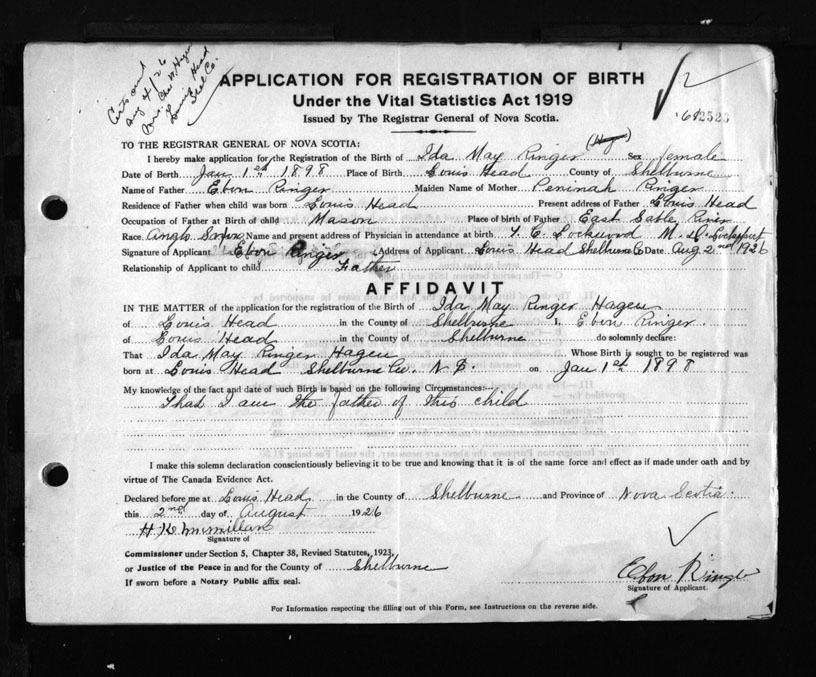 Certs sent
Aug 4/26
Mrs. Chas W. Hagen
Louis Head
Shel Co.
APPLICATION FOR REGISTRATION OF BIRTH
Under the Vital Statistics Act 1919
Issued by The Registrar General of Nova Scotia.
TO THE REGISTRAR GENERAL OF NOVA SCOTIA:
I hereby make application for the Registration of the Birth of Ida May Ringer Sex female
Date of Birth Jan 1st 1898 Place of Birth Louis Head County of Shelburne
Name of Father Ebon Ringer Maiden Name of Mother Peninah Ringer
Residence of Father when child was born Louis Head Present address of Father Louis Head
Occupation of Father at Birth of child Mason Place of birth of Father East Sable River
Race Anglo Name and present address of Physician in attendance at birth Lockwood M.D. Lockeport
Signature of Applicant Ebon Ringer Address of Applicant Louis Head Shelburne Co Date Aug 2nd 1926
Relationship of Applicant to child Father
AFFIDAVIT
IN THE MATTER of the application for the registration of the Birth of Ida May Ringer Hagen
of Louis Head in the County of Shelburne I, Ebon Ringer
of Louis Head in the County of Shelburne do solemnly declare:
That Ida May Ringer Hagen Whose Birth is sought to be registered was
born at Louis Head Shelburne Co. N S. on Jan 1st 1898
My knowledge of the fact and date of such Birth is based on the following Circumstances:—
That I am the father of this child
I make this solemn declaration conscientiously believing it to be true and knowing that it is of the same force and effect as if made under oath and by
virtue of The Canada Evidence Act.
Declared before me at Louis Head in the County of Shelburne and Province of Nova Scotia.
this 2nd day of August 1926
H. K. McMillan
Signature of
Commissioner under Section 5, Chapter 38, Revised Statutes, 1923,
or Justice of the Peace in and for the County of Shelburne
If sworn before a Notary Public affix seal.
Ebon Ringer
Signature of Applicant.
For Information respecting the filling out of this Form, see Instructions on the reverse side.